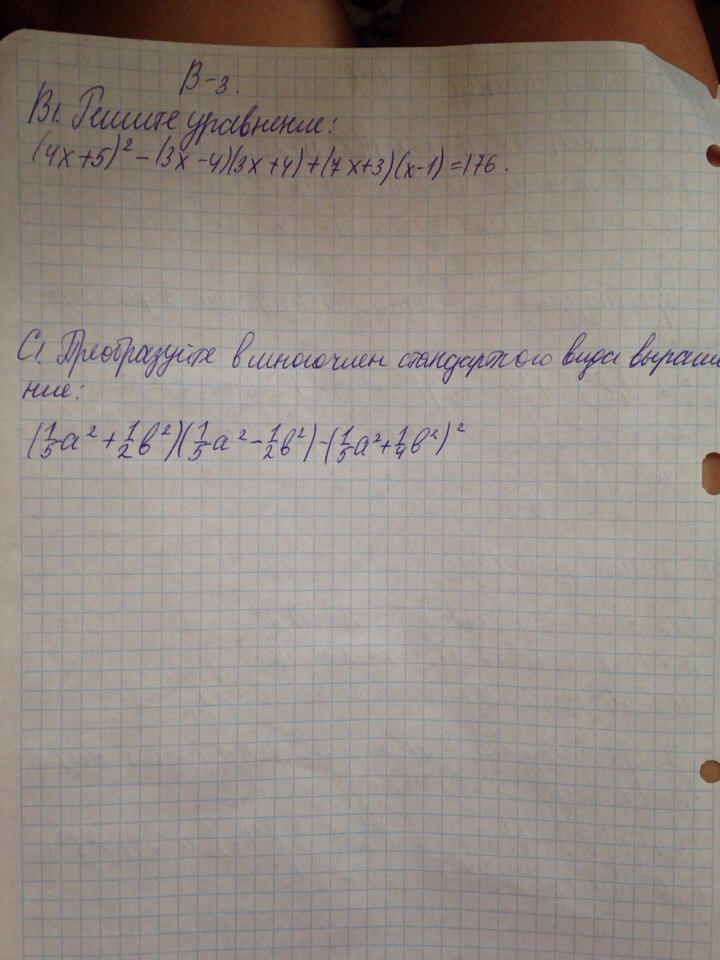 В-3.
В1. Решите уравнение:
(4x+5)² - (3x-4)(3x+4)+(7x+3)(x-1)=176.
С1. Преобразуйте в многочлен стандартного вида выраже
ние:
(1/5a²+1/2b²)(1/5a²-1/2b²)-(1/5a²+1/4b²)²